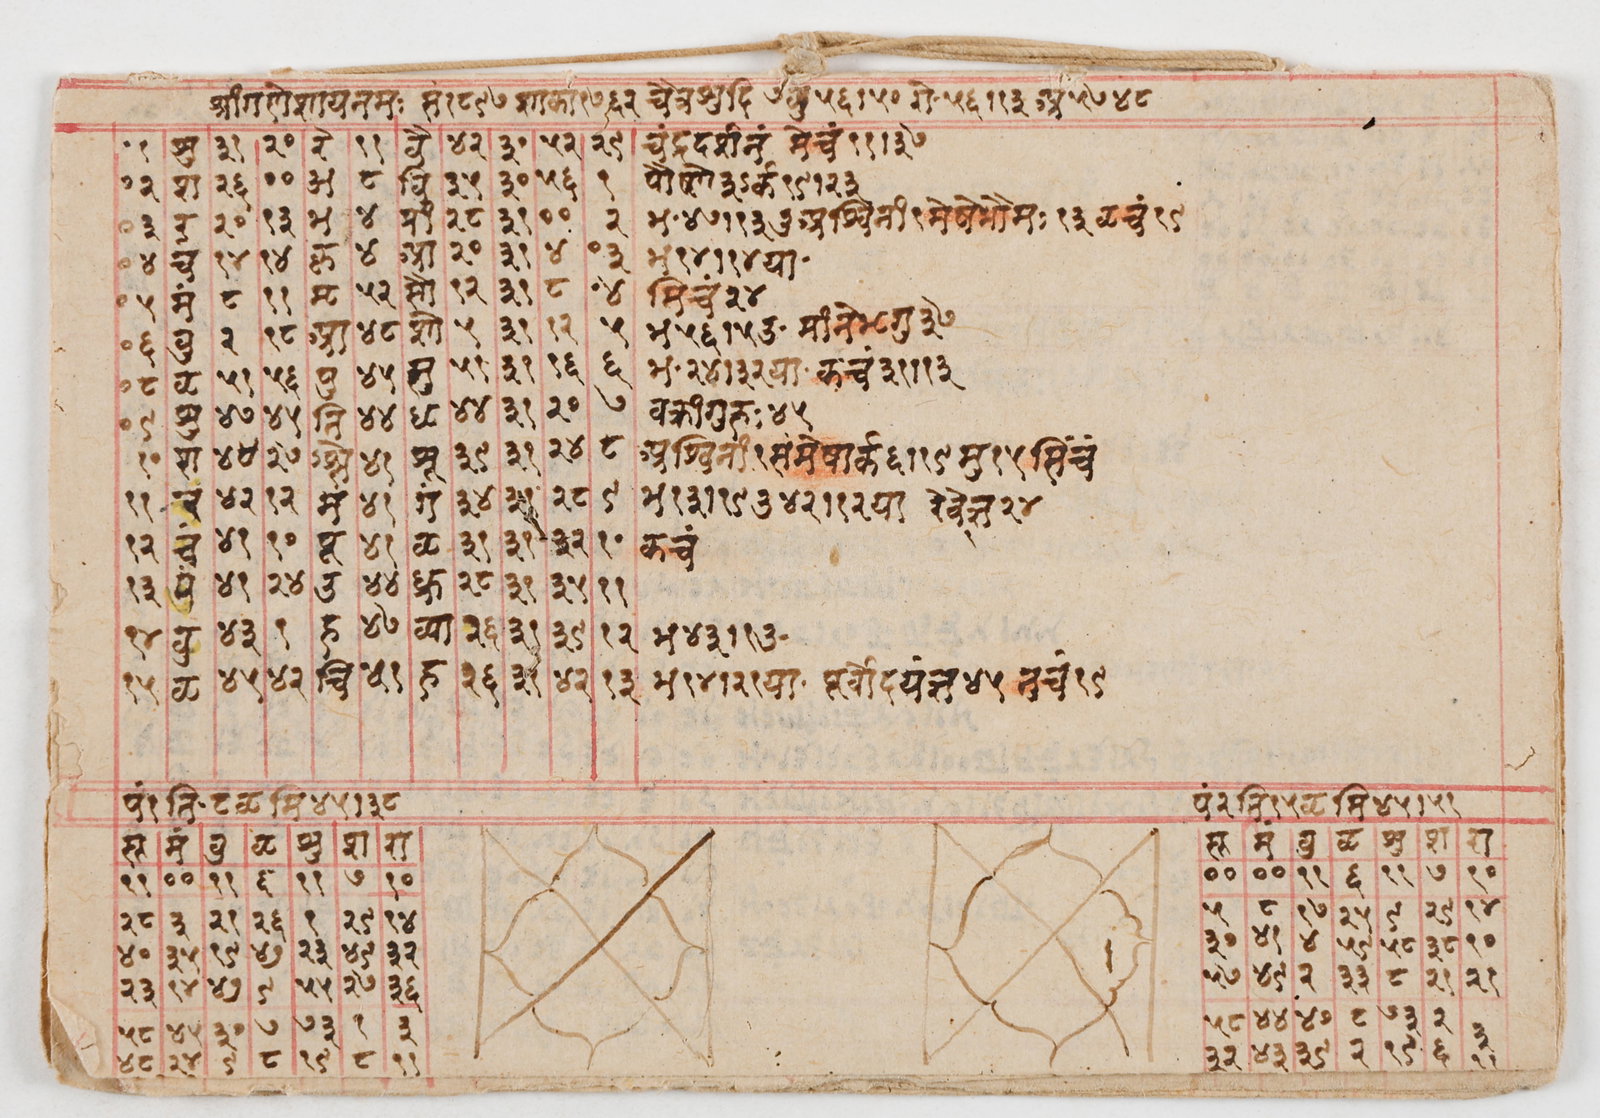 श्रीगणेशायनमः सं१८९७ शाका१७६२ चैत्रशुदि ७ बु५६।५० गे॰५६।१३ अ५७४८
॰१ शु ३१ २० रे ११ वै ४२ ३० ५२ २९ चंद्रदर्शनं मेचं११।३७
॰२ श २६ ०० अ ८ वि ३५ ३० ५६ १ पौष्णे३ऽर्क१९।२३
०३ र २० १३ भ ४ प्री २८ ३१ ०० २ भ॰४७।१३उ अश्विनी१मेषेभौमः१३ वृचं१९
०४ चं १४ १४ कृ ४ आ २० ३१ ४ ०३ भ१४।१४या॰
०५ मं ८ ११ मृ ५२ सौ १२ ३१ ८ ४ मिचं२४
०६ बु २ १८ आ ४८ शो ५ ३१ १२ ५ भ५६।५उ॰ मीनेभृगु३७
०८ वृ ५१ ५६ पु ४५ सु ५१ ३१ १६ ६ भ॰२४।३२या॰ कचं३१।१३
०९ शु ४७ ४५ ति ४४ धृ ४४ ३१ २० ७ वक्रीगुरुः४५
१० श ४४ २७ श्ले ४१ शू ३९ ३१ २४ ८ अश्विनी१संमेषार्क६।१९ मु१५ सिंचं
११ र ४२ १२ मं ४१ गं ३४ ३१ २८ ९ भ१३।१९उ ४२।१२या रेवेज्ञ२४
१२ चं ४१ १० पू ४१ वृ ३१ ३१ ३२ १० कचं
१३ मं ४१ २४ उ ४४ ध्रु २८ ३१ ३५ ११
१४ बु ४३ १ ह ४७ व्या २६ ३१ ३९ १२ भ४३।१उ॰
१५ वृ ४५ ४२ चि ५१ ह २६ ३१ ४२ १३ भ१४।२१या॰ पूर्वोदयंज्ञ४५ तुचं१९
पं१ ति॰८वृ मि४५।३८
सू मं बु वृ शु श रा
११ ०० ११ ६ ११ ७ १०
२८ ३ २१ २६ १ २९ १४
४० ३५ १९ ४७ २३ ४९ ३२
२३ १४ ४७ ९ ५५ २७ ३६
५८ ४५ ३० ७ ७३ १ ३
४८ २४ ९ ८ १९ ८ ११
पं२ ति१५वृ मि४५।५१
सू मं बु वृ शु श रा
०० ०० ११ ६ ११ ७ १०
५ ८ १७ २५ ९ २९ १४
३० ४१ ४ ५९ ५८ ३८ १०
५७ ४९ २ ३३ ८ २१ २१
५८ ४४ ४० ८ ७३ २ ३
३२ ४३ ३९ २ १९ ६ ११